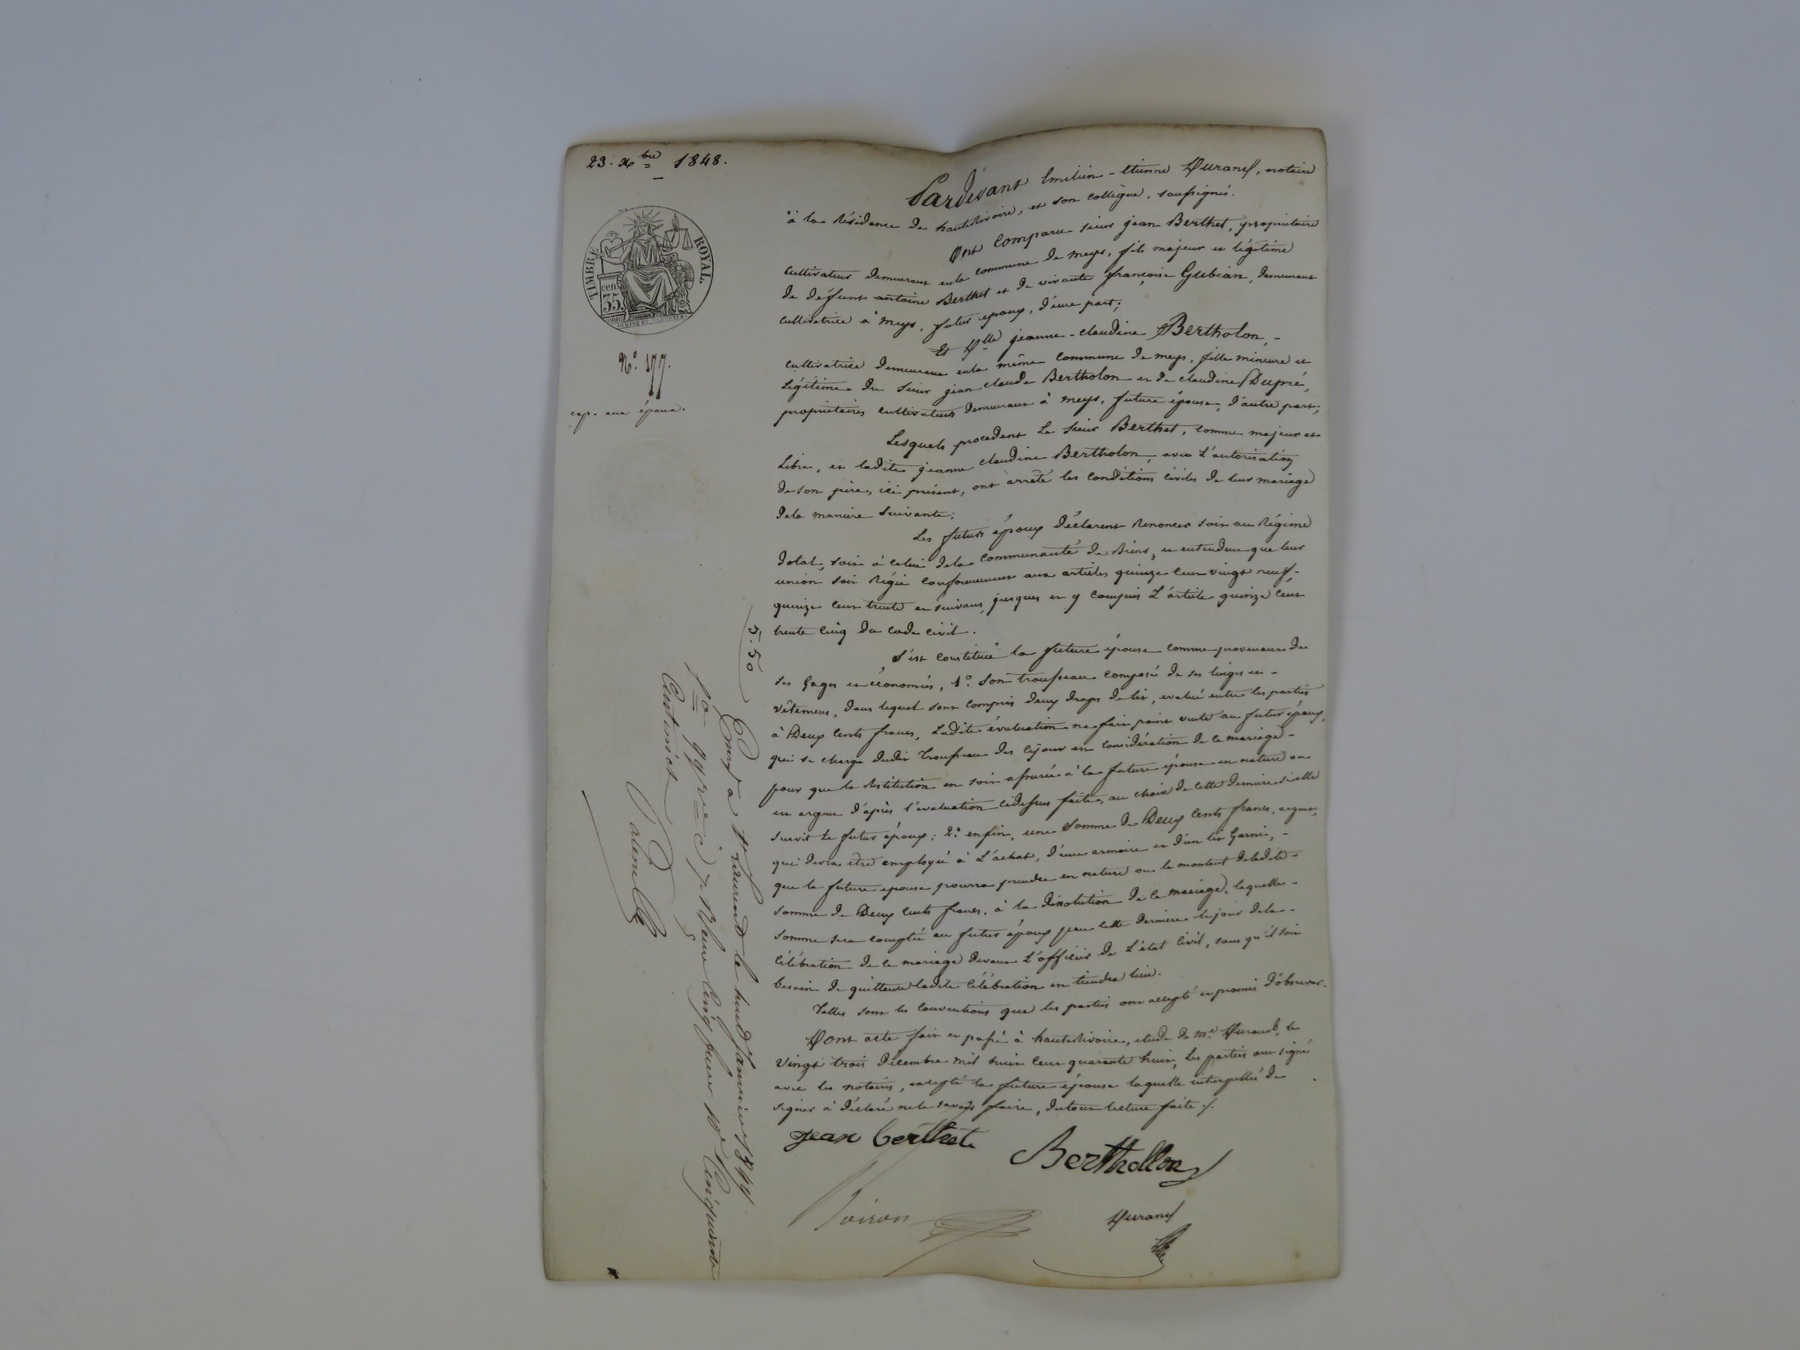 23. Xbre 1848.
TIMBRE ROYAL.
cen. 35
N.° 177.
exp. aux époux.
Pardevant Emilien-étienne Durand, notaire
à la Résidence de hauterivoire, et son collègue, soussignés.
Ont Comparu Sieur jean Berthet, propriétaire
Cultivateur demeurant enla commune de meys, fils majeur et légitime
de défunt antoine Berthet et de vivante françoise Gubian, demeurant
cultivatrice à meys, futur époux, d'une part;
Et Dlle jeanne-claudine Bertholon,-
cultivatrice demeurant enla même commune de meys, fille mineure et
Légitime du Sieur jean claude Bertholon et de claudine Dupré,
propriétaires cultivateurs demeurant à meys, future épouse, d'autre part;
Lesquels procédant Le Sieur Berthet, comme majeur et
Libre, et ladite jeanne claudine Bertholon, avec L'autorisation
de son père, ici présent, ont arrêté les conditions civiles de leur mariage
dela manière Suivante:
Les futurs époux déclarent Renoncer soit au Régime
dotal, soit à celui dela communauté de Biens, et entendent que leur
union soit Régie conformément aux articles quinze cent vingt neuf,-
quinze cent trente et suivans, jusques et y compris L'article quinze cent
trente cinq du code civil.
S'est constitué la future épouse comme provenant de
ses Gages et économies, 1.° Son trousseau composé de ses linges et-
vêtemens, dans lequel sont compris deux draps de lit, évalué entre les parties
à Deux Cents francs, Ladite évaluation ne fait point vente au futur époux,
qui se charge dudit Trousseau dès cejour en considération de ce mariage-
pour que la Restitution en soit assurée à la future épouse en nature ou
en argent d'après l'évaluation cidessus faite, au choix de cette dernière si elle
survit le futur époux: 2.° enfin, une Somme de Deux Cents francs, argent,
qui devra être employée à L'achat, d'une armoire et d'un lit Garni,-
que la future épouse pourra prendre en nature ou le montant deladite-
somme de Deux cents francs, à la dissolution de ce mariage, laquelle-
somme sera comptée au futur époux par cette dernière lejour dela-
célébration de ce mariage devant L'officier de L'état Civil, sans qu'il soit
besoin de quittance ladite Célébration en tiendra lieu.
Telles sont les conventions que les parties ont accepté et promis d'observer.
Dont acte fait et passé à hauterivoire, étude de me. Durand, le
Vingt trois décembre mil huit cent quarante huit, Les parties ont signé
avec les notaires, excepté la future épouse laquelle interpellée de
signer a déclaré nele savoir faire, detout lecture faite./.
jean berthet
Berthollon
Voiron
Durand
5.50
Enregé à St Laurent le huit Janvier 1849.
Reçu Cinq francs 10e Cinquante
Centimes